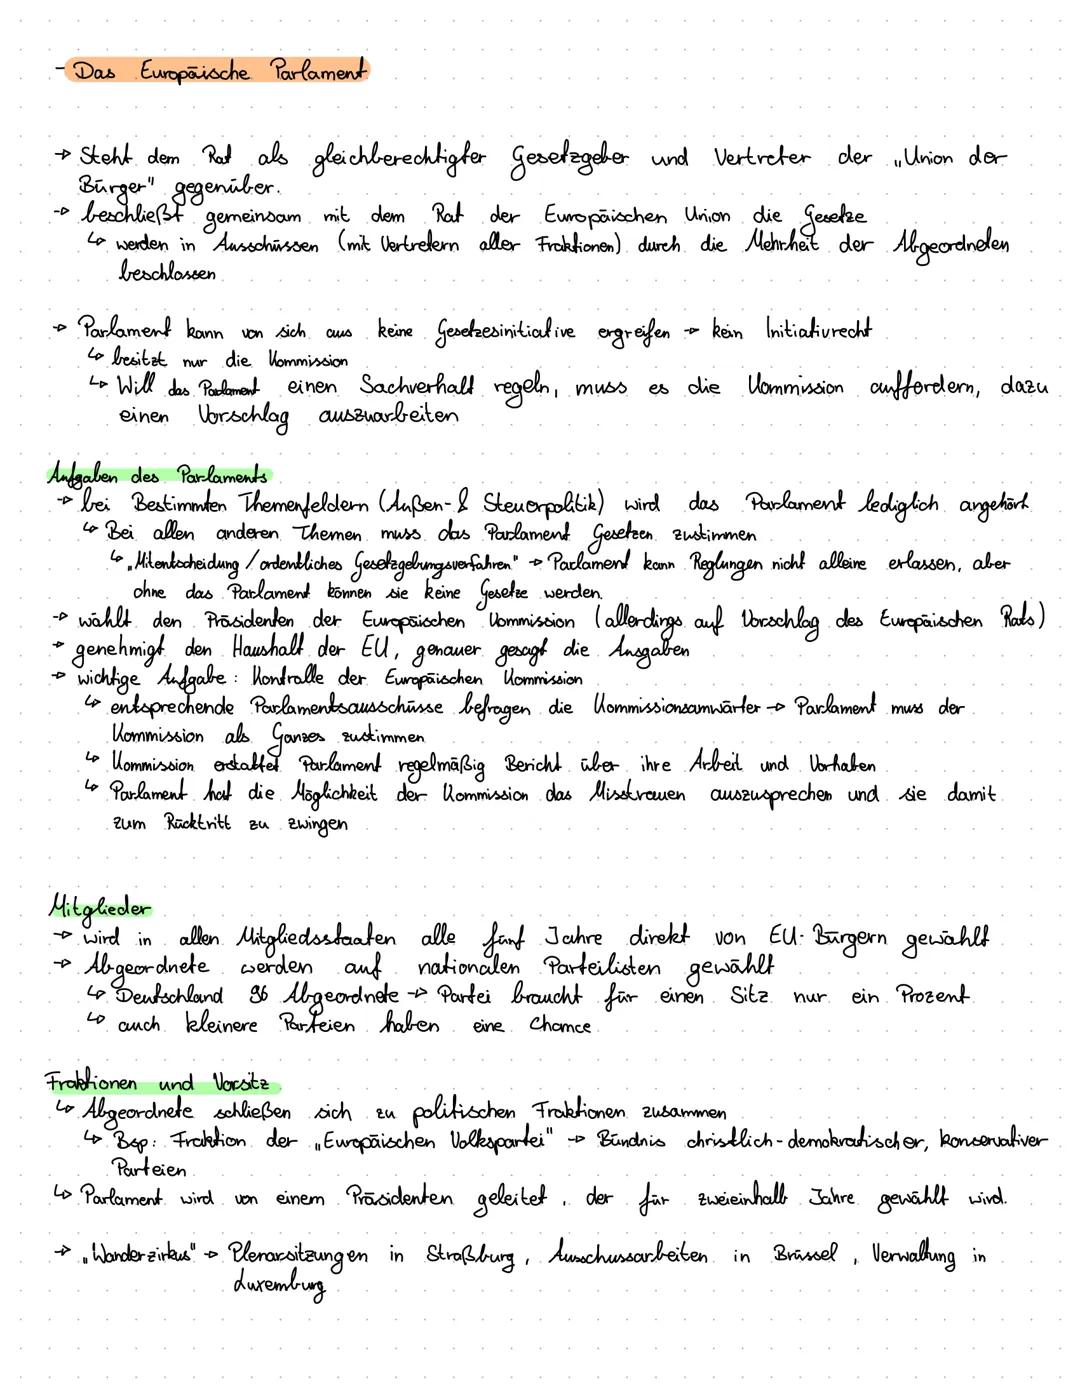 - Das Europäische Parlament
→ Steht dem Rat als gleichberechtigter Gesetzgeber und Vertreter der „Union der
Bürger" gegenüber.
→ beschließt gemeinsam mit dem Rat der Europäischen Union die Gesetze
↳ werden in Ausschüssen (mit Vertretern aller Fraktionen) durch die Mehrheit der Abgeordneten
beschlossen
→ Parlament kann von sich aus keine Gesetzesinitiative ergreifen → kein Initiativrecht
↳ besitzt nur die Kommission
↳ Will das Parlament einen Sachverhalt regeln, muss es die Kommission auffordern, dazu
einen Vorschlag auszuarbeiten
Aufgaben des Parlaments
→ bei Bestimmten Themenfeldern (Außen- & Steuerpolitik) wird das Parlament lediglich angehört
↳ Bei allen anderen Themen muss das Parlament Gesetzen zustimmen
↳ „Mitentscheidung / ordentliches Gesetzgebungsverfahren" → Parlament kann Reglungen nicht alleine erlassen, aber
ohne das Parlament können sie keine Gesetze werden.
→ wählt den Präsidenten der Europäischen Kommission (allerdings auf Vorschlag des Europäischen Rats)
→ genehmigt den Haushalt der EU, genauer gesagt die Ausgaben
→ wichtige Aufgabe: Kontrolle der Europäischen Kommission
↳ entsprechende Parlamentsausschüsse befragen die Kommissionsamwärter → Parlament muss der
Kommission als Ganzes zustimmen
↳ Kommission erstattet Parlament regelmäßig Bericht über ihre Arbeit und Vorhaben
↳ Parlament hat die Möglichkeit der Kommission das Misstrauen auszusprechen und sie damit
zum Rücktritt zu zwingen
Mitglieder
→ wird in allen Mitgliedsstaaten alle fünf Jahre direkt von EU-Bürgern gewählt
→ Abgeordnete werden auf nationalen Parteilisten gewählt
↳ Deutschland 96 Abgeordnete → Partei braucht für einen Sitz nur ein Prozent
↳ auch kleinere Parteien haben eine Chance
Fraktionen und Vorsitz
↳ Abgeordnete schließen sich zu politischen Fraktionen zusammen
↳ Bsp: Fraktion der „Europäischen Volkspartei" → Bündnis christlich-demokratischer, konservativer
Parteien
↳ Parlament wird von einem Präsidenten geleitet, der für zweieinhalb Jahre gewählt wird.
→ „Wanderzirkus" → Plenarsitzungen in Straßburg, Ausschussarbeiten in Brüssel, Verwaltung in
Luxemburg